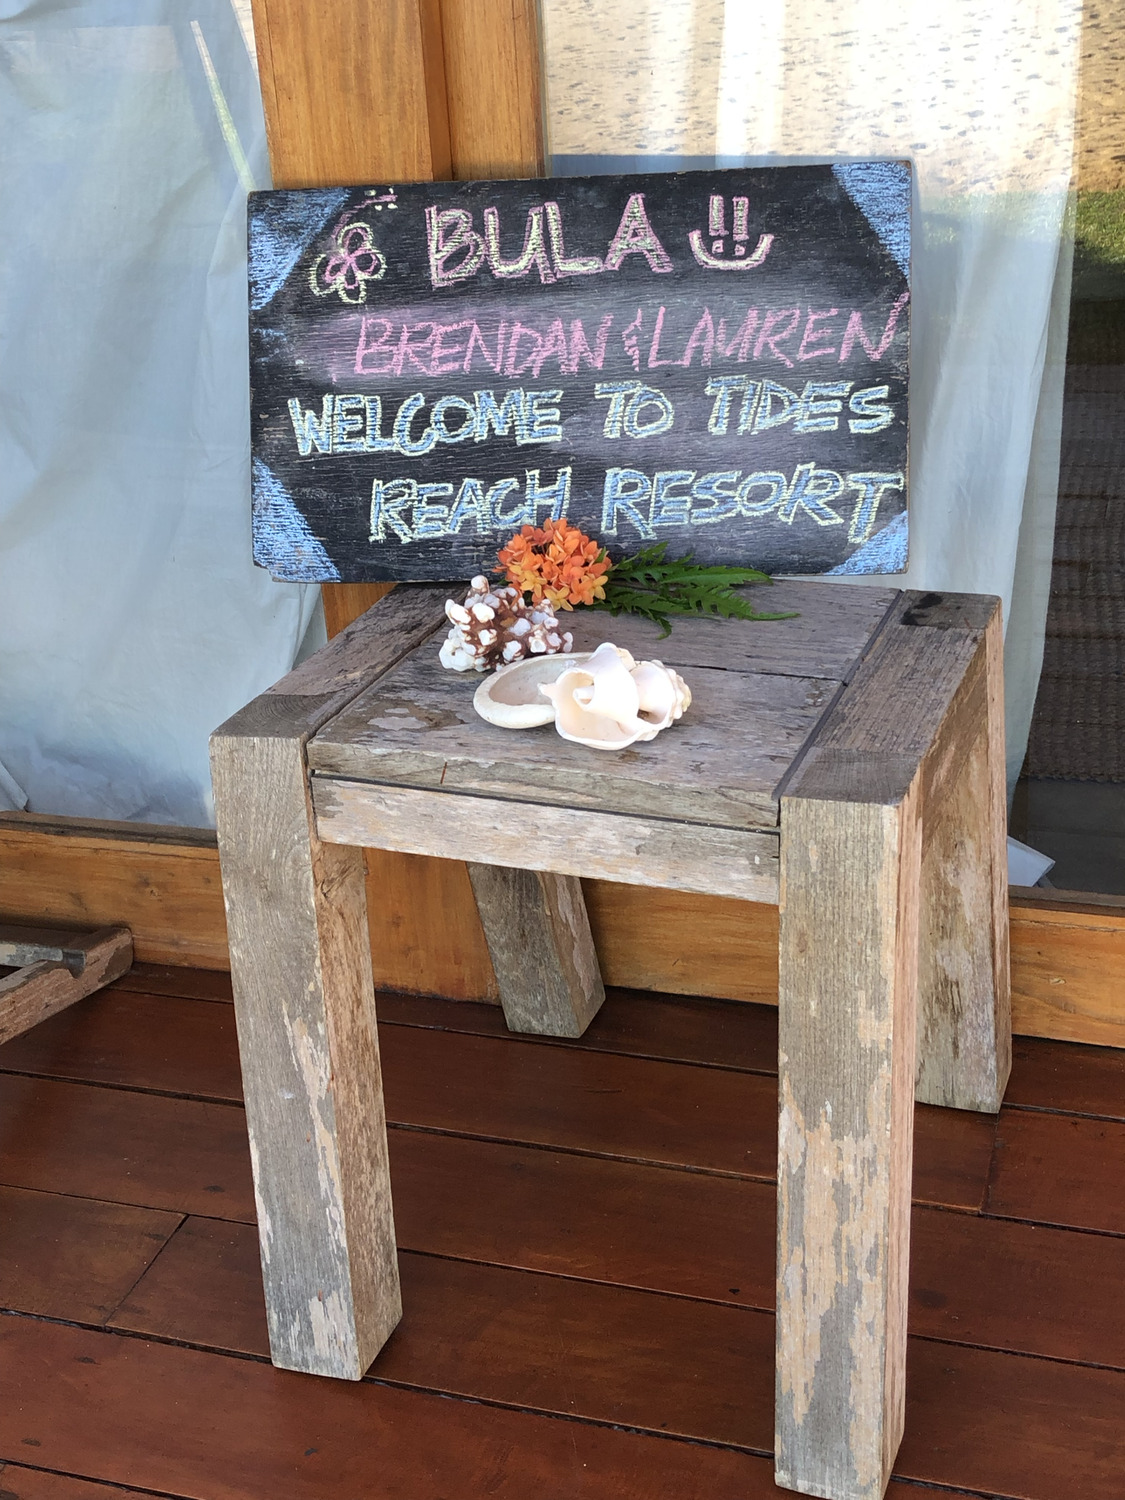 BULA !!
BRENDAN & LAUREN
WELCOME TO TIDES
REACH RESORT